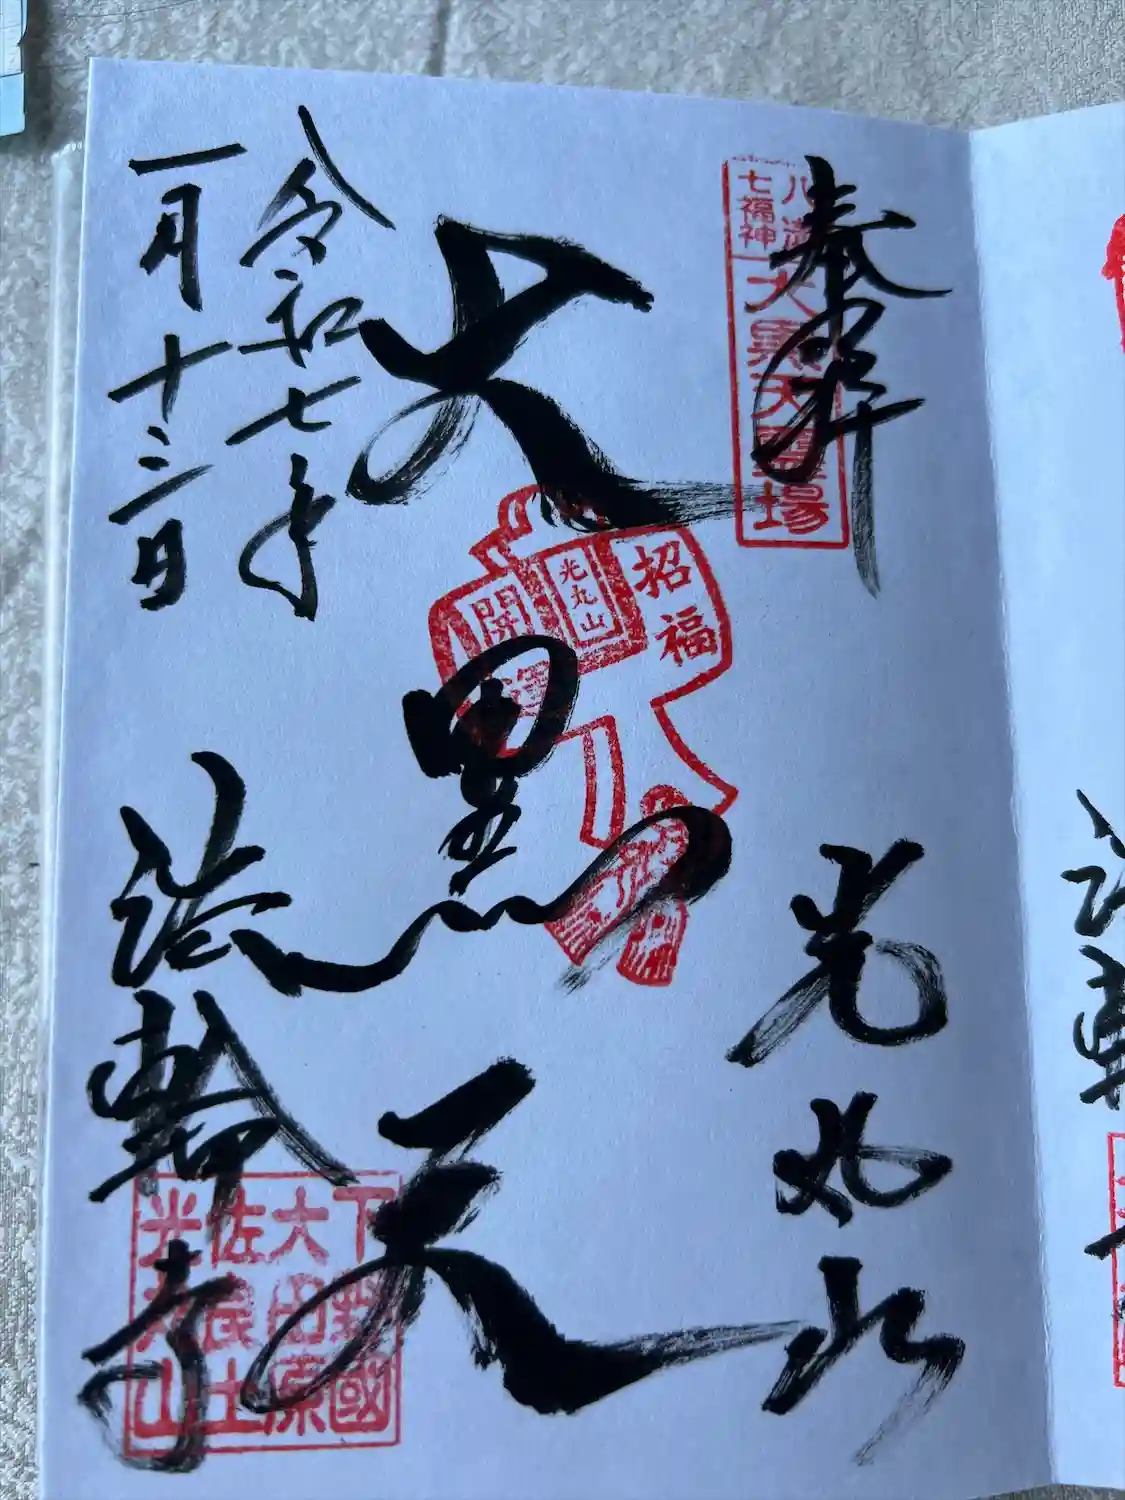 奉拝
八溝
七福神
大黒天霊場
光丸山
大黒天
招福
光丸山
開運
令和七年
一月十三日
法輪寺
下野國
大田原
佐良土
光丸山